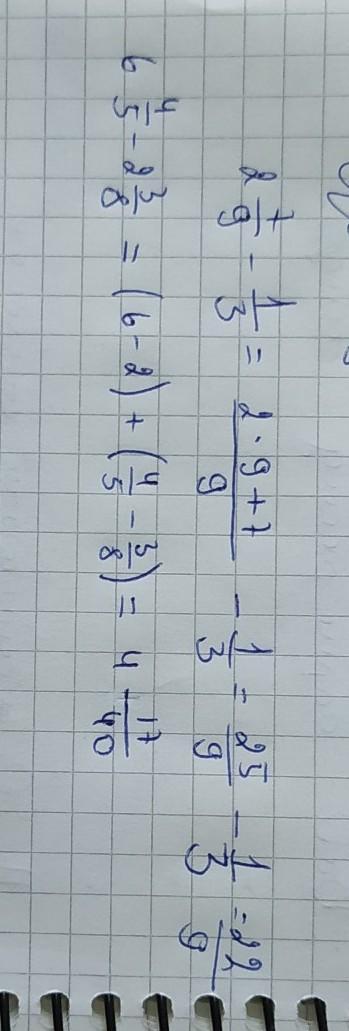 2 7/9 - 1/3 = (2·9+7)/9 - 1/3 = 25/9 - 1/3 = 22/9
6 4/5 - 2 3/8 = (6-2) + (4/5 - 3/8) = 4 17/40